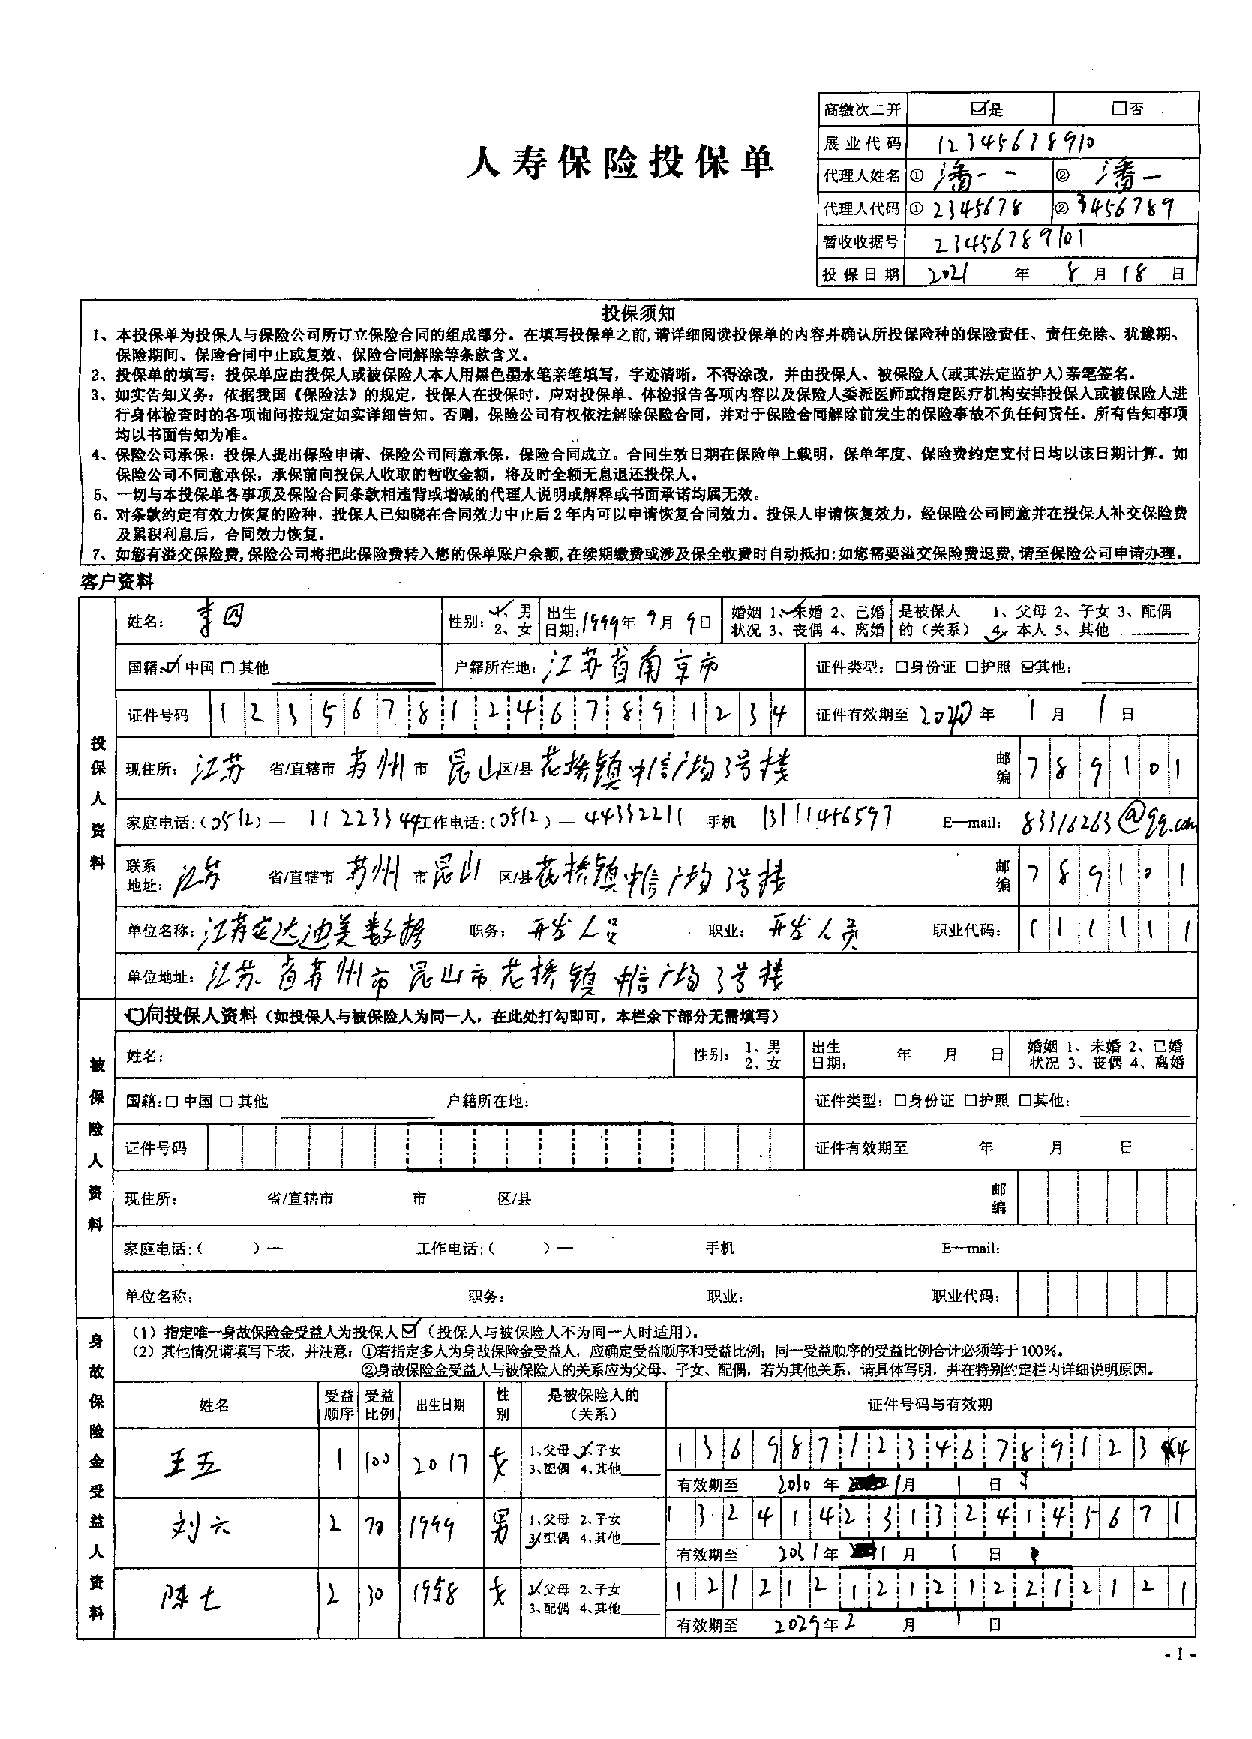 高缴次二开 ☑是 □否
人寿保险投保单
展业代码 12345678910
代理人姓名 ① 潘一一 ② 潘一
代理人代码 ① 2345678 ② 3456789
暂收收据号 23456789101
投保日期 2021 年 8 月 18 日
投保须知
1、本投保单为投保人与保险公司所订立保险合同的组成部分。在填写投保单之前,请详细阅读投保单的内容并确认所投保险种的保险责任、责任免除、犹豫期、
保险期间、保险合同中止或复效、保险合同解除等条款含义。
2、投保单的填写：投保单应由投保人或被保险人本人用黑色墨水笔亲笔填写，字迹清晰，不得涂改，并由投保人、被保险人(或其法定监护人)亲笔签名。
3、如实告知义务：依据我国《保险法》的规定，投保人在投保时，应对投保单、体检报告各项内容以及保险人委派医师或指定医疗机构安排投保人或被保险人进
行身体检查时的各项询问按规定如实详细告知。否则，保险公司有权依法解除保险合同，并对于保险合同解除前发生的保险事故不负任何责任。所有告知事项
均以书面告知为准。
4、保险公司承保：投保人提出保险申请、保险公司同意承保，保险合同成立。合同生效日期在保险单上载明，保单年度、保险费约定支付日均以该日期计算。如
保险公司不同意承保，承保前向投保人收取的暂收金额，将及时全额无息退还投保人。
5、一切与本投保单各事项及保险合同条款相违背或增减的代理人说明或解释或书面承诺均属无效。
6、对条款约定有效力恢复的险种，投保人已知晓在合同效力中止后2年内可以申请恢复合同效力。投保人申请恢复效力，经保险公司同意并在投保人补交保险费
及累积利息后，合同效力恢复。
7、如您有溢交保险费,保险公司将把此保险费转入您的保单账户余额,在续期缴费或涉及保全收费时自动抵扣;如您需要溢交保险费退费,请至保险公司申请办理。
客户资料
投保人资料
姓名： 李四 性别： 1、男 2、女 出生日期： 1999 年 9 月 9 日 婚姻状况 1、未婚 2、已婚 3、丧偶 4、离婚 是被保人的（关系） 1、父母 2、子女 3、配偶 4、本人 5、其他
国籍：☑中国 □其他 户籍所在地： 江苏省南京市 证件类型：□身份证 □护照 ☑其他：
证件号码 1 2 3 5 6 7 8 1 2 4 6 7 8 9 1 2 3 4 证件有效期至 2040 年 1 月 1 日
现住所： 江苏 省/直辖市 苏州 市 昆山 区/县 花桥镇中信广场3号楼 邮编 7 8 9 1 0 1
家庭电话:(0512)— 11223344 工作电话:(0512)— 44332211 手机 13111456597 E—mail: 83316263@qq.com
联系地址： 江苏 省/直辖市 苏州 市 昆山 区/县 花桥镇中信广场3号楼 邮编 7 8 9 1 0 1
单位名称： 江苏宏达迪美数据 职务： 开发人员 职业： 开发人员 职业代码： 1 1 1 1 1 1
单位地址： 江苏省苏州市昆山市花桥镇中信广场3号楼
被保险人资料
☑同投保人资料（如投保人与被保险人为同一人，在此处打勾即可，本栏余下部分无需填写）
姓名： 性别： 1、男 2、女 出生日期： 年 月 日 婚姻状况 1、未婚 2、已婚 3、丧偶 4、离婚
国籍：□ 中国 □ 其他 户籍所在地： 证件类型：□身份证 □护照 □其他：
证件号码 证件有效期至 年 月 日
现住所： 省/直辖市 市 区/县 邮编
家庭电话:( )— 工作电话:( )— 手机 E—mail:
单位名称： 职务： 职业： 职业代码：
身故保险金受益人资料
（1）指定唯一身故保险金受益人为投保人☑（投保人与被保险人不为同一人时适用）。
（2）其他情况请填写下表，并注意：①若指定多人为身故保险金受益人，应确定受益顺序和受益比例；同一受益顺序的受益比例合计必须等于100%。
②身故保险金受益人与被保险人的关系应为父母、子女、配偶，若为其他关系，请具体写明，并在特别约定栏内详细说明原因。
姓名 受益顺序 受益比例 出生日期 性别 是被保险人的（关系） 证件号码与有效期
王五 1 100 2017 女 1、父母 2、子女 3、配偶 4、其他 1 3 6 9 8 7 1 2 3 4 6 7 8 9 1 2 3 4
有效期至 2010 年 1 月 1 日
刘六 2 70 1999 男 1、父母 2、子女 3、配偶 4、其他 1 3 2 4 1 4 2 3 1 3 2 4 1 4 5 6 7 1
有效期至 2031 年 1 月 1 日
陈七 2 30 1958 女 1、父母 2、子女 3、配偶 4、其他 1 2 1 2 1 2 1 2 1 2 1 2 2 1 2 1 2 1
有效期至 2029 年 2 月 1 日
- 1 -